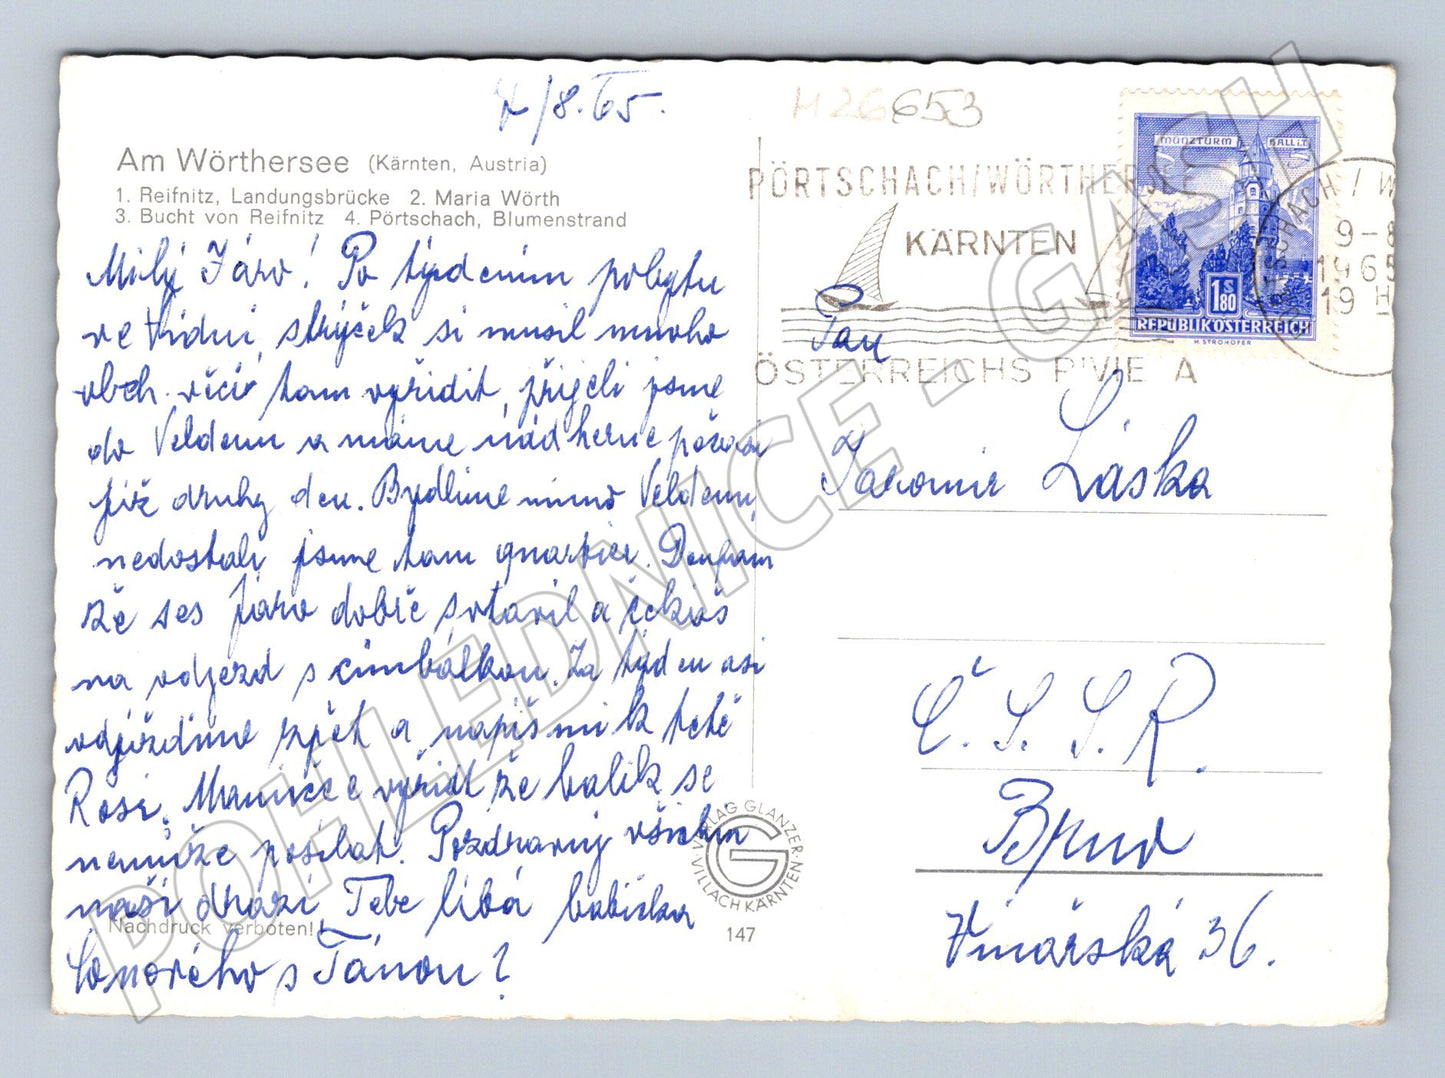 7/8. 65.
H26653
Am Wörthersee (Kärnten, Austria)
1. Reifnitz, Landungsbrücke 2. Maria Wörth
3. Bucht von Reifnitz 4. Pörtschach, Blumenstrand
Milý Járo! Po týdenním pobytu
ve Vídni, strýček si musil mnoho
obch. věcí tam vyřídit, přijeli jsme
do Veldenu a máme nádherné počasí
již druhý den. Bydlíme mimo Velden,
nedostali jsme tam quartier. Doufám
že ses Járo dobře zotavil a čekáš
na odjezd s cimbálkou. Za týden asi
odjíždíme zpět a napiš mi k tetě
Rosi. Mamince vyřiď že balík se
nemůže posílat. Pozdravuj všechny
naši drazí, Tebe líbá babička
s Tánou?
Nachdruck verboten!
VERLAG GLANZER
VILLACH KÄRNTEN
G
147
PÖRTSCHACH/WÖRTHERSEE
KÄRNTEN
ÖSTERREICHS RIVIERA
MÜNZTURM HALL i.T.
1S80
REPUBLIK ÖSTERREICH
H. STROHOFER
9-8
1965
19 H
Pan
Jaromír Láska
Č. S. S. R.
Brno
Vinařská 36.
POHLEDNICE - GASH